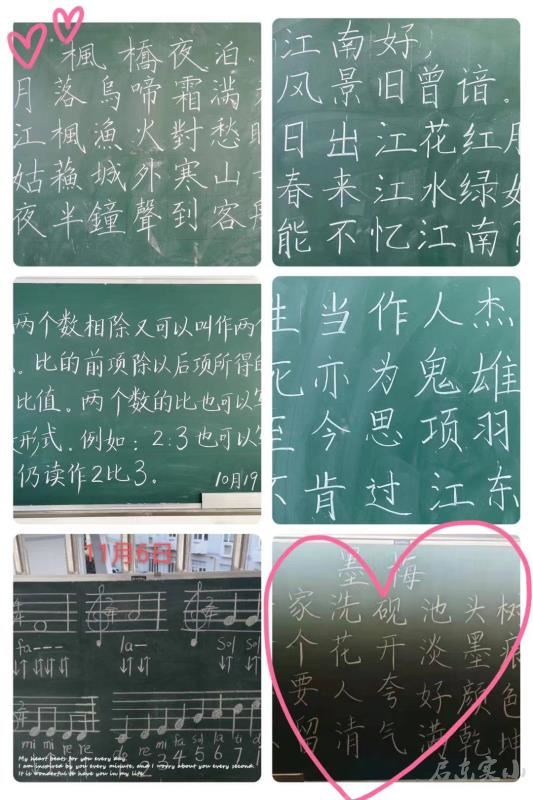 楓橋夜泊
月落烏啼霜滿
江楓漁火對愁
姑蘇城外寒山
夜半鐘聲到客
江南好,
风景旧曾谙。
日出江花红
春来江水绿如
能不忆江南?
两个数相除又可以叫作两个
。比的前项除以后项所得的
比值。两个数的比也可以写
形式。例如:2:3也可以写
仍读作2比3。
10月19
生当作人杰
死亦为鬼雄
至今思项羽
不肯过江东
11月5日
fa--- la- sol sol
mi mi re re do re mi fa sol la ti
3 4 5 6 7
My heart beats for you every day.
I am inspired by you every minute, and I worry about you every second.
It is wonderful to have you in my life.
墨梅
家洗砚池头树
个花开淡墨痕
要人夸好颜色
留清气满乾坤